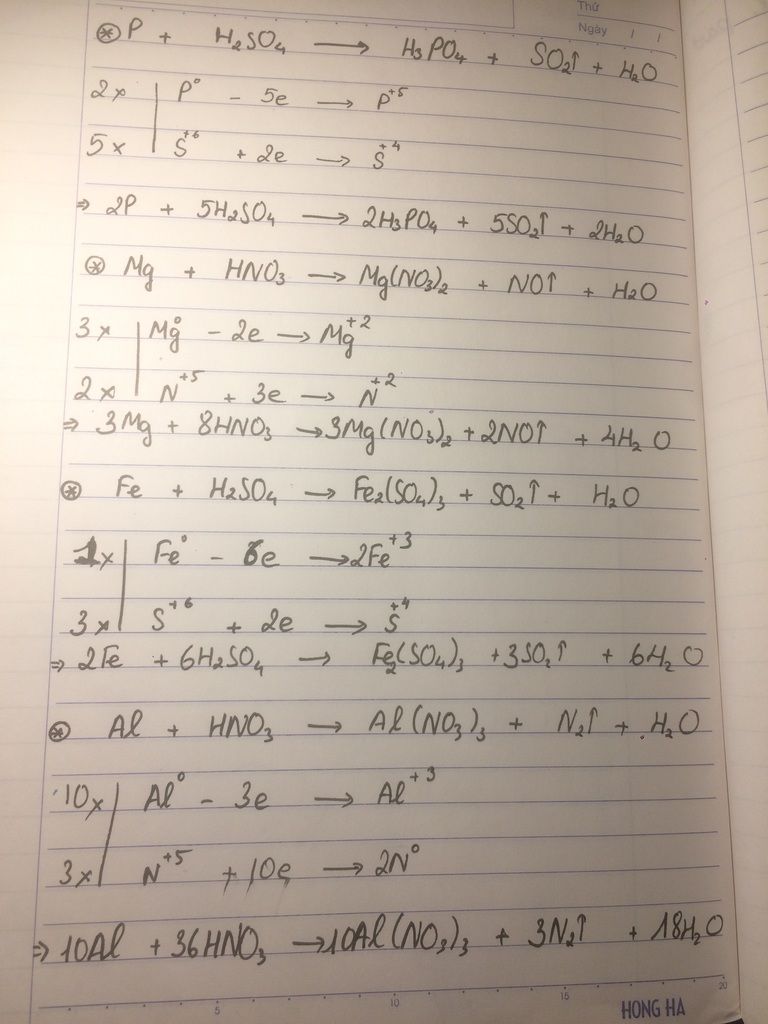 Thứ
Ngày / /
⊛ P + H₂SO₄ ⟶ H₃PO₄ + SO₂↑ + H₂O
2x | P⁰ - 5e ⟶ P⁺⁵
5x | S⁺⁶ + 2e ⟶ S⁺⁴
⇒ 2P + 5H₂SO₄ ⟶ 2H₃PO₄ + 5SO₂↑ + 2H₂O
⊛ Mg + HNO₃ ⟶ Mg(NO₃)₂ + NO↑ + H₂O
3x | Mg⁰ - 2e ⟶ Mg⁺²
2x | N⁺⁵ + 3e ⟶ N⁺²
⇒ 3Mg + 8HNO₃ ⟶ 3Mg(NO₃)₂ + 2NO↑ + 4H₂O
⊛ Fe + H₂SO₄ ⟶ Fe₂(SO₄)₃ + SO₂↑ + H₂O
1x | Fe⁰ - 6e ⟶ 2Fe⁺³
3x | S⁺⁶ + 2e ⟶ S⁺⁴
⇒ 2Fe + 6H₂SO₄ ⟶ Fe₂(SO₄)₃ + 3SO₂↑ + 6H₂O
⊛ Al + HNO₃ ⟶ Al(NO₃)₃ + N₂↑ + H₂O
10x | Al⁰ - 3e ⟶ Al⁺³
3x | N⁺⁵ + 10e ⟶ 2N⁰
⇒ 10Al + 36HNO₃ ⟶ 10Al(NO₃)₃ + 3N₂↑ + 18H₂O
5 10 15 20
HONG HA